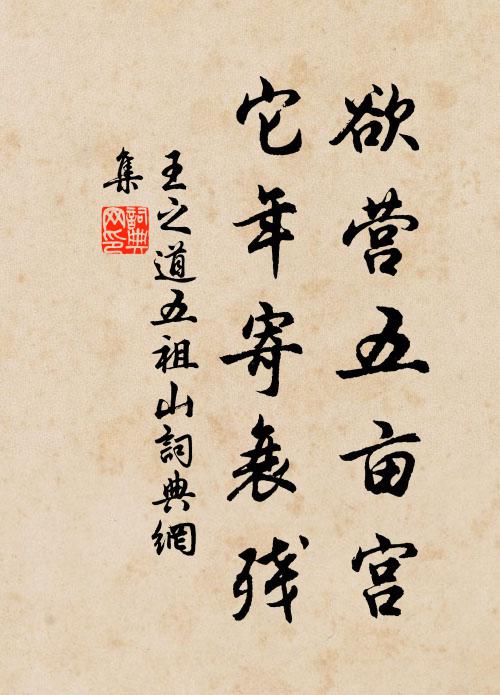 欲营五亩宫
它年寄衰残
王之道五祖山詞典網
集
詞典网印